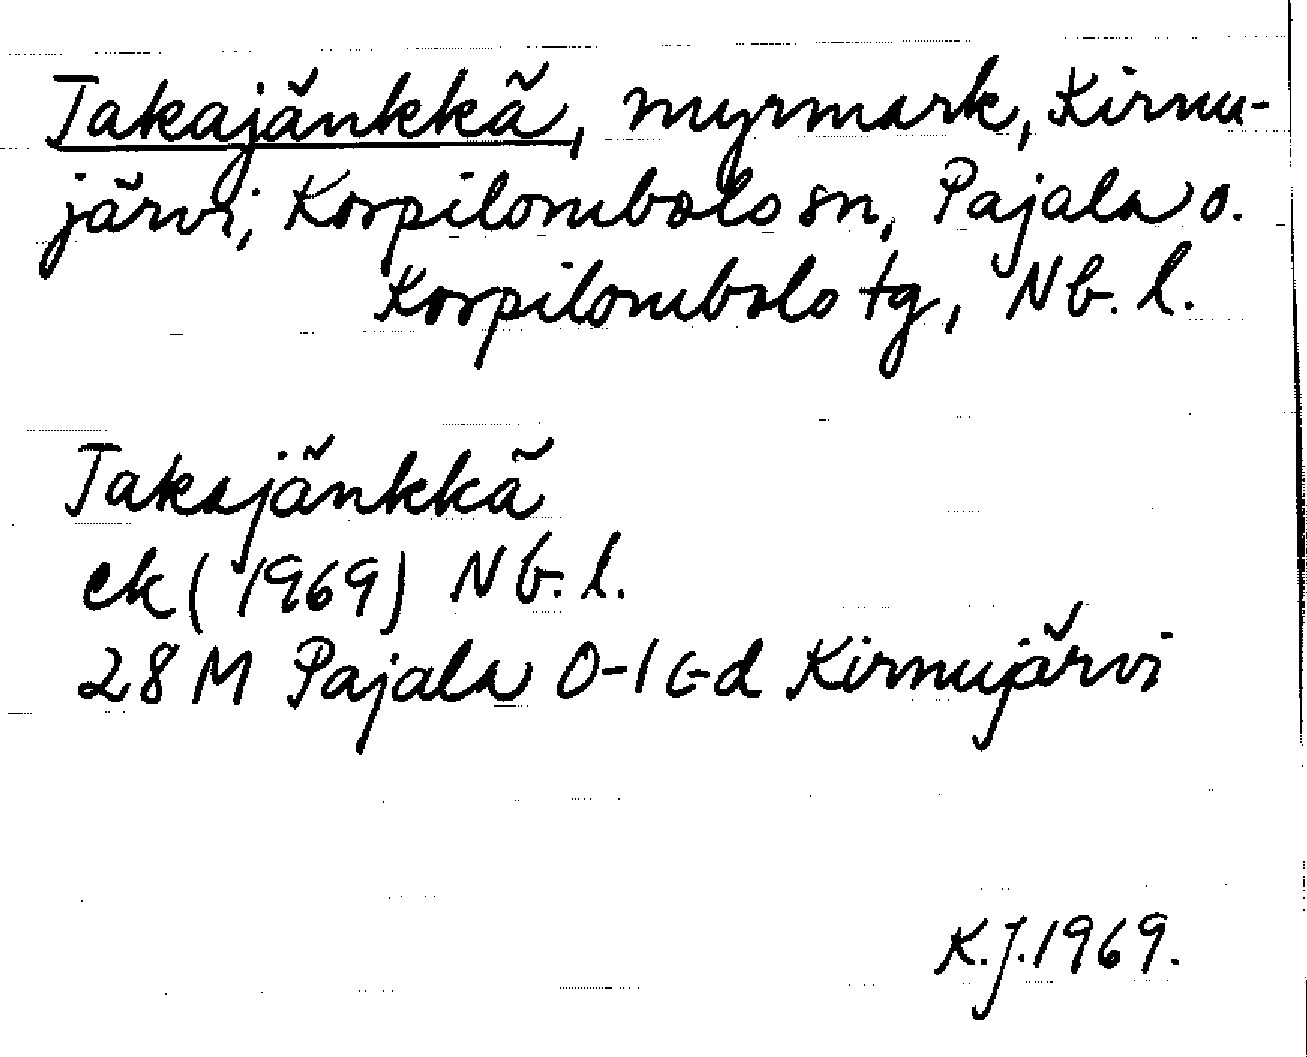 Takajänkkä, myrmark, Kirnu-
järvi, Korpilombolo sn, Pajala o.
Korpilombolo tg, Nb. l.
Takajänkkä
ek (1969) Nb. l.
28 M Pajala 0-1 c-d Kirnujärvi
K.J. 1969.